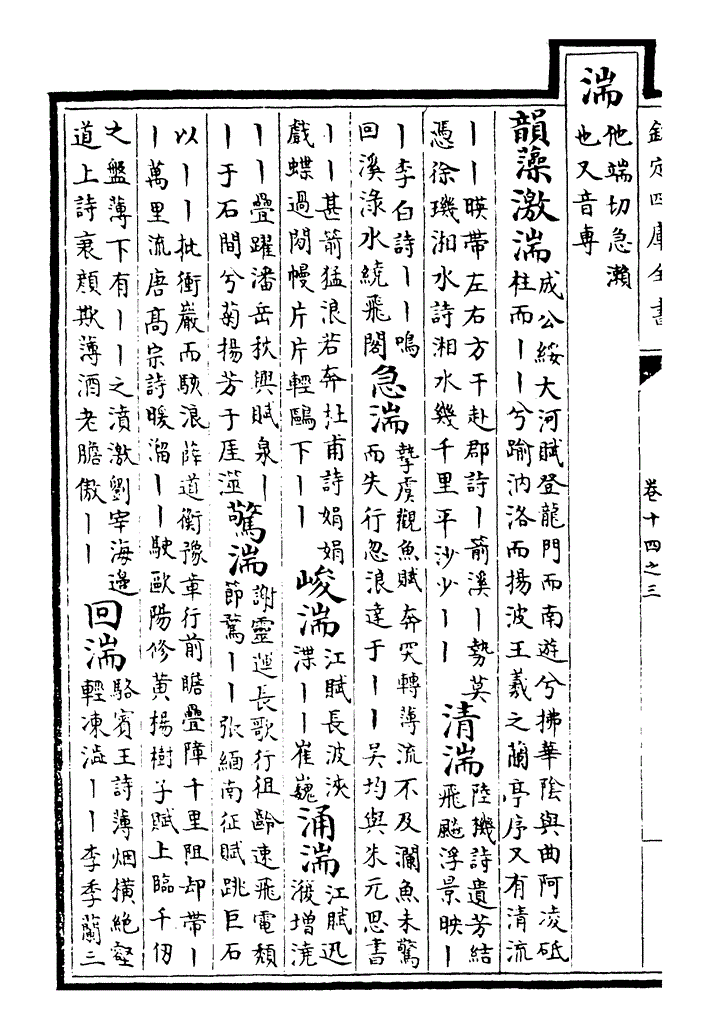 欽定四庫全書 卷十四之三
湍
他端切急瀬
也又音專
韻藻激湍
成公綏大河賦登龍門而南遊兮拂華陰與曲阿凌砥
柱而丨丨兮踰汭洛而揚波王羲之蘭亭序又有清流
丨丨暎帶左右方干赴郡詩丨箭溪丨勢莫
憑徐璣湘水詩湘水幾千里平沙少丨丨
清湍
陸機詩遺芳結
飛飈浮景映丨
丨李白詩丨丨鳴
回溪渌水繞飛閣
急湍
摯虞觀魚賦奔突轉薄流不及瀾魚未驚
而失行忽浪達于丨丨吳均與朱元思書
丨丨甚箭猛浪若奔杜甫詩娟娟
戲蝶過閒幔片片輕鷗下丨丨
峻湍
江賦長波浹
渫丨丨崔巍
涌湍
江賦迅
澓增澆
丨丨疊躍潘岳秋興賦泉丨
丨于石間兮菊揚芳于厓澨
驚湍
謝靈運長歌行徂齡速飛電頹
節騖丨丨張緬南征賦跳巨石
以丨丨批衝巖而駭浪薛道衡豫章行前瞻疊障千里阻却帶丨
丨萬里流唐高宗詩暖溜丨丨駛歐陽修黃楊樹子賦上臨千仞
之盤薄下有丨丨之濆激劉宰海邊
道上詩衰顔欺薄酒老膽傲丨丨
回湍
駱賓王詩薄烟橫絶壑
輕凍澁丨丨李季蘭三